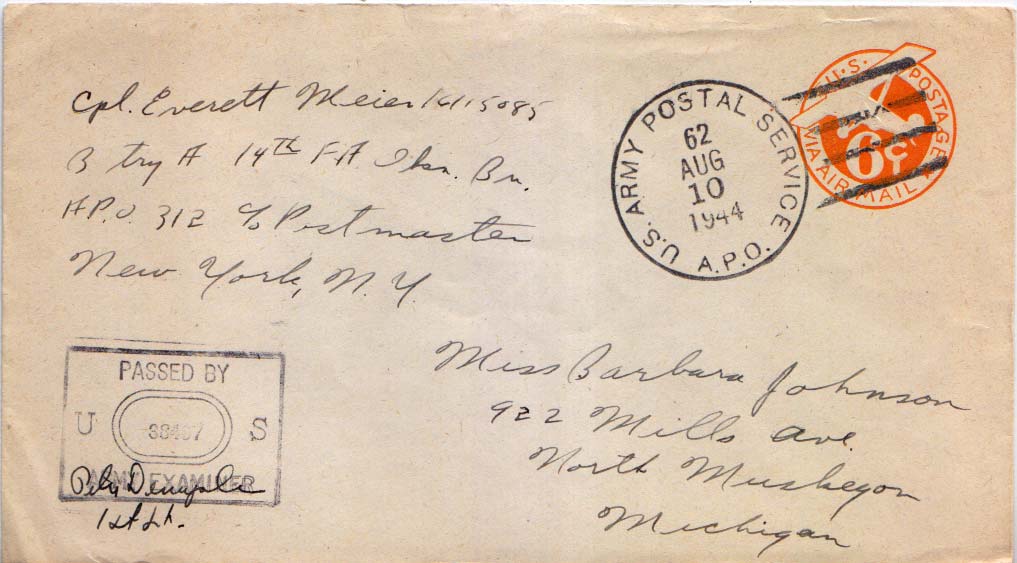 Cpl. Everett Meier 16115085
Btry A 14th F.A. Obsn. Bn.
A.P.O. 312 c/o Postmaster
New York, N.Y.
U.S. ARMY POSTAL SERVICE
A.P.O.
62
AUG
10
1944
U.S. POSTAGE
VIA AIR MAIL
6¢
PASSED BY
U S
ARMY EXAMINER
1st Lt.
Miss Barbara Johnson
922 Mills Ave.
North Muskegon
Michigan